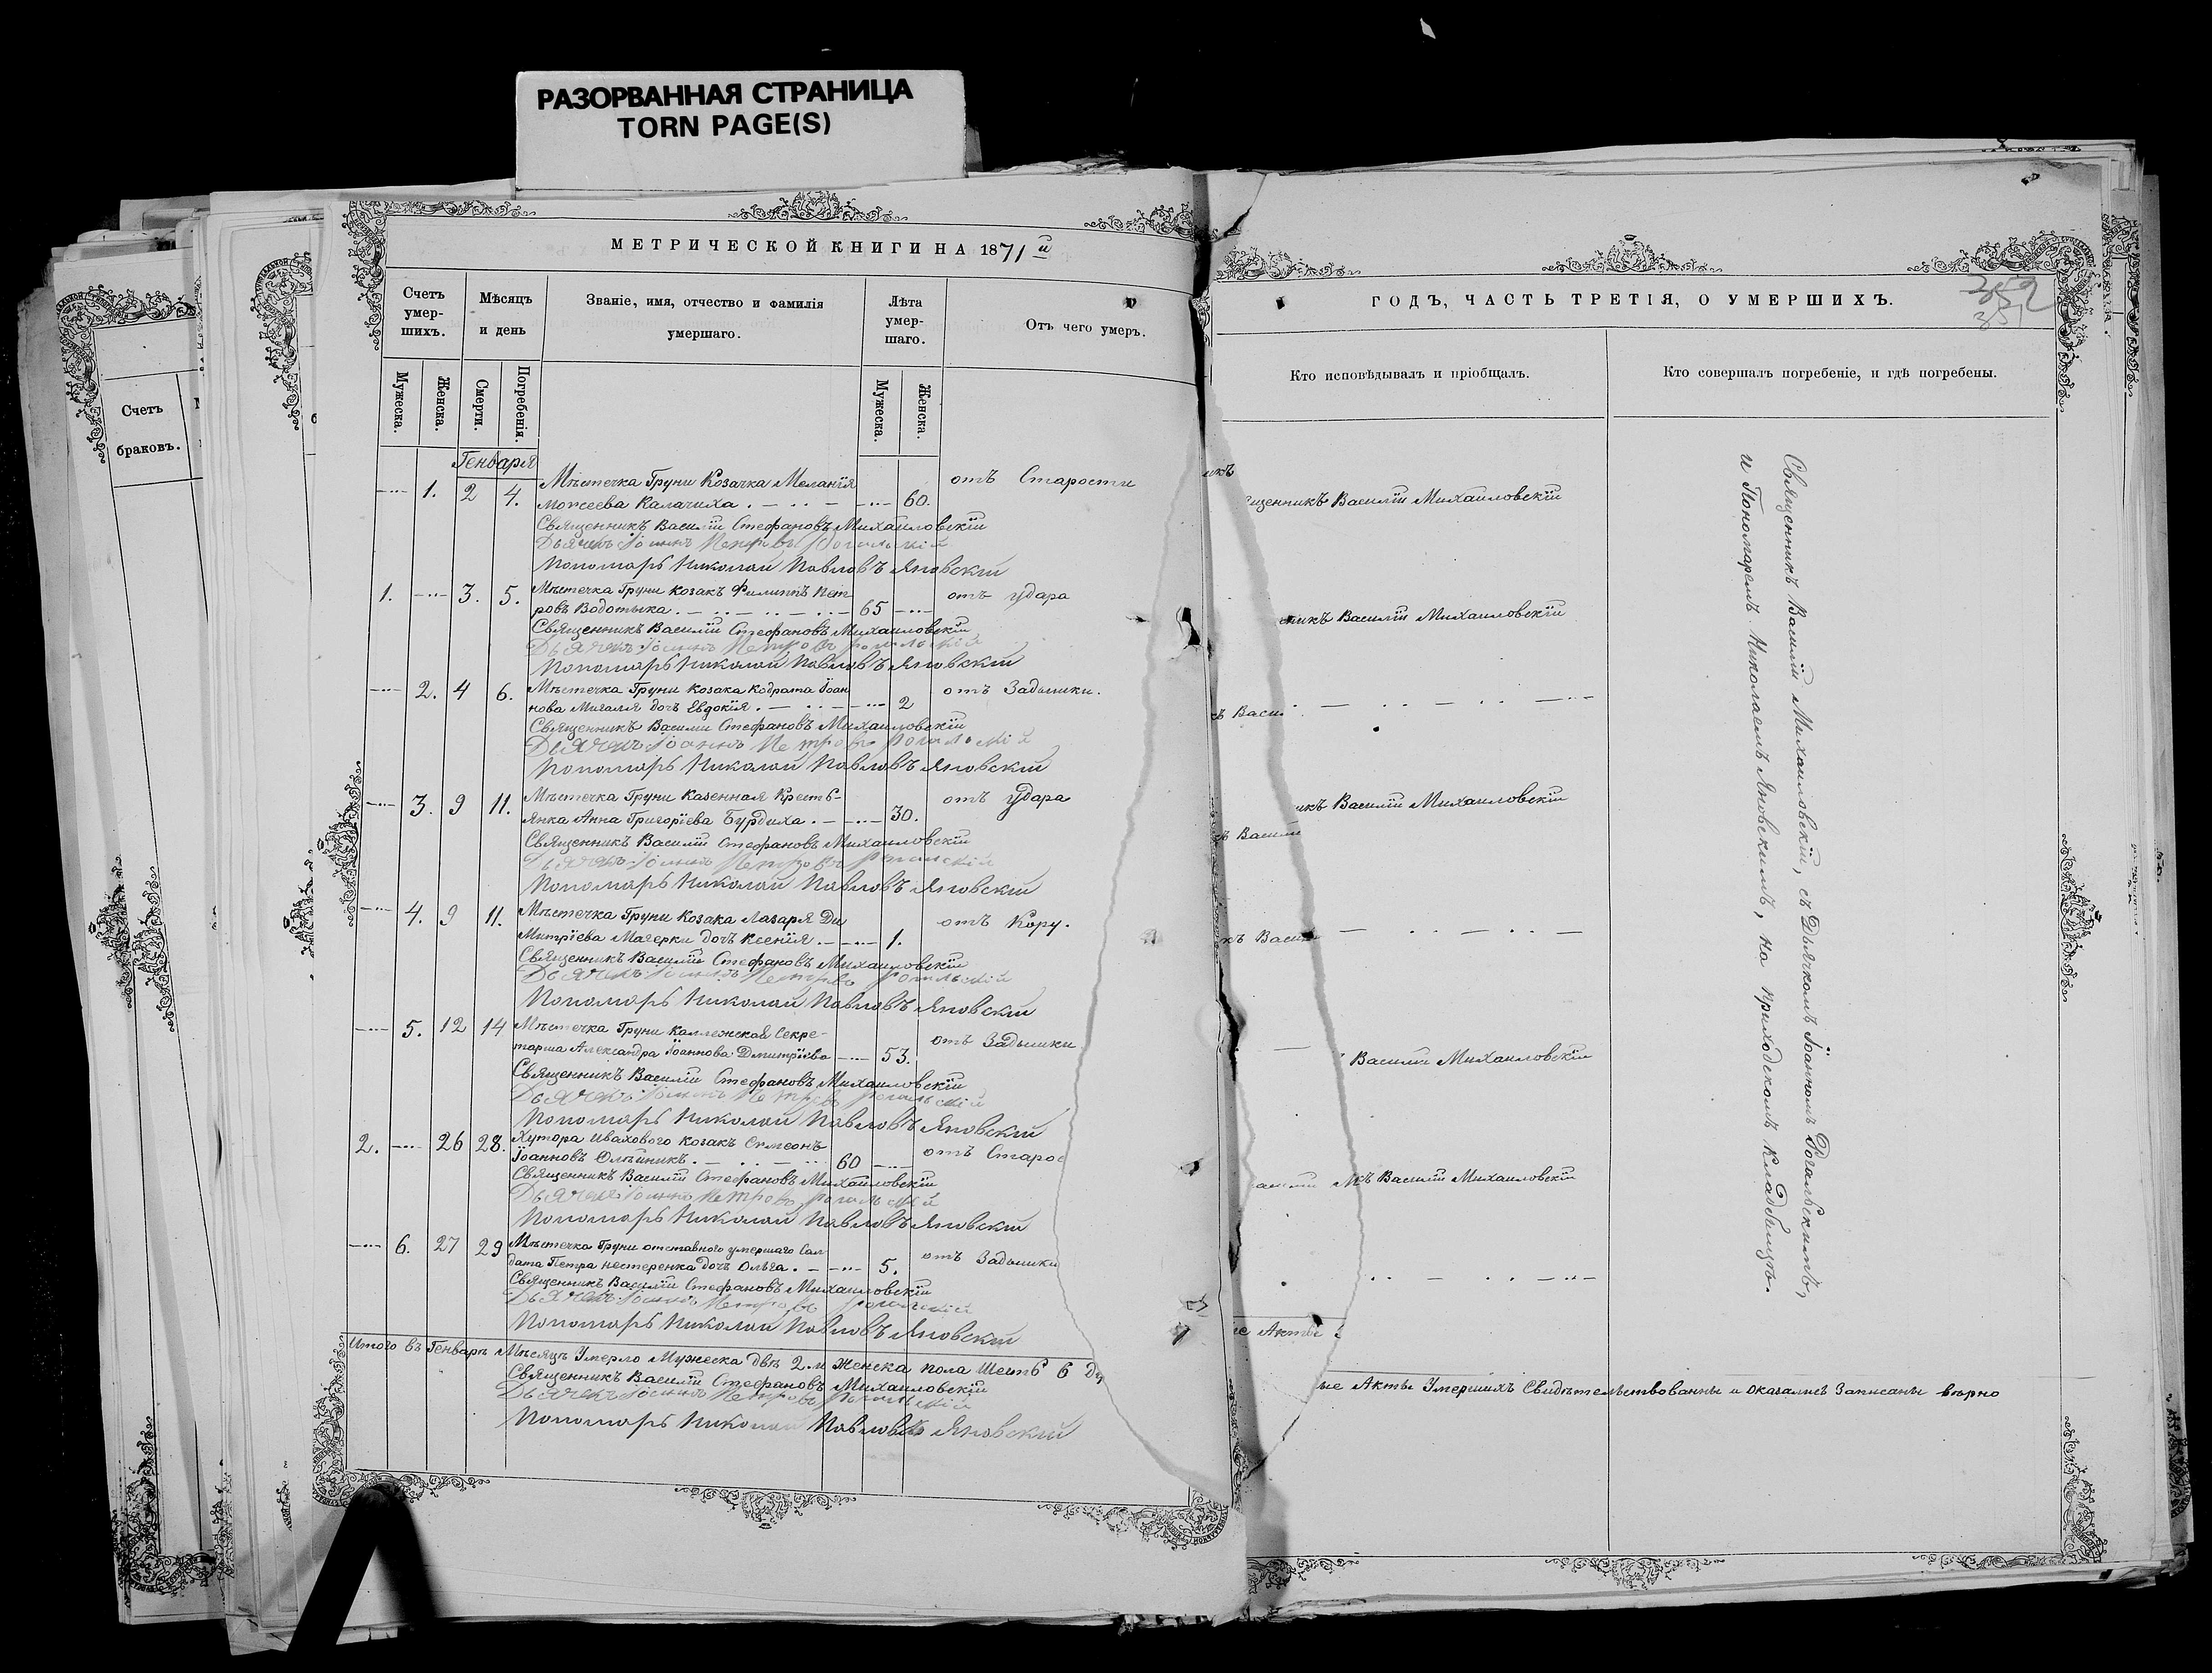 РАЗОРВАННАЯ СТРАНИЦА
TORN PAGE(S)
Счетъ
браковъ.
МЕТРИЧЕСКОЙ КНИГИ НА 1871й
Счетъ умер-шихъ.
Мѣсяцъ и день
Званіе, имя, отчество и фамилія умершаго.
Лѣта умер-шаго.
Отъ чего умеръ.
Мужеска.
Женска.
Смерти.
Погребенія.
Мужеска.
Женска.
Генваря
1. 2 4. Мѣстечка Груни Козачка Меланія отъ Старости
Мойсеева Калачиха 60.
Священникъ Василій Стефановъ Михаиловскій
Дьячекъ Іоаннъ Петровъ Рогальскій
Пономарь Николай Павловъ Яновскій
1. 3. 5. Мѣстечка Груни козакъ Филиппъ Пет отъ удара
ровъ Водотыка 65
Священникъ Василій Стефановъ Михаиловскій
Дьячекъ Іоаннъ Петровъ Рогальскій
Пономарь Николай Павловъ Яновскій
2. 4 6. Мѣстечка Груни козака Кодрата Іоан отъ Задышки.
нова Мигаля дочь Евдокія 2
Священникъ Василій Стефановъ Михаиловскій
Дьячекъ Іоаннъ Петровъ Рогальскій
Пономарь Николай Павловъ Яновскій
3. 9 11. Мѣстечка Груни Казенная Кресть- отъ Удара
янка Анна Григоріева Бурдиха 30.
Священникъ Василій Стефановъ Михаиловскій
Дьячекъ Іоаннъ Петровъ Рогальскій
Пономарь Николай Павловъ Яновскій
4. 9 11. Мѣстечка Груни Козака Лазаря Ди отъ Кору.
митріева Магерки дочь Ксенія 1.
Священникъ Василій Стефановъ Михаиловскій
Дьячекъ Іоаннъ Петровъ Рогальскій
Пономарь Николай Павловъ Яновскій
5. 12 14 Мѣстечка Груни Каллежская Секре- отъ Задышки
тарша Александра Іоаннова Дмитріева 53.
Священникъ Василій Стефановъ Михаиловскій
Дьячекъ Іоаннъ Петровъ Рогальскій
Пономарь Николай Павловъ Яновскій
2. 26 28. Хутора Ивахового козакъ Симеонъ отъ Старос
Іоанновъ Олѣйникъ 60
Священникъ Василій Стефановъ Михаиловскій
Дьячекъ Іоаннъ Петровъ Рогальскій
Пономарь Николай Павловъ Яновскій
6. 27 29 Мѣстечка Груни отставного умершаго Сал отъ Задышки
дата Петра Нестеренка дочь Ольга 5.
Священникъ Василій Стефановъ Михаиловскій
Дьячекъ Іоаннъ Петровъ Рогальскій
Пономарь Николай Павловъ Яновскій
Итого въ Генварѣ Мѣсяцѣ Умерло Мужеска двѣ 2. и Женска пола Шесть 6 ду
Священникъ Василій Стефановъ Михаиловскій
Дьячекъ Іоаннъ Петровъ Рогальскій
Пономарь Николай Павловъ Яновскій
ГОДЪ, ЧАСТЬ ТРЕТІЯ, О УМЕРШИХЪ.
352
351
Кто исповѣдывалъ и пріобщалъ.
Кто совершалъ погребеніе, и гдѣ погребены.
щенникъ Василій Михаиловскій
никъ Василій Михаиловскій
ъ Васи
икъ Василій Михаиловскій
ъ Васили
къ Васи
Василій Михаиловскій
къ Василій Михаиловскій
ые Акты
ые Акты Умершихъ Свидѣтельствованны и оказались Записаны вѣрно
Священникъ Василій Михаиловскій, съ Дьячкомъ Іоанномъ Рогальскимъ,
и Пономаремъ Николаемъ Яновскимъ, на приходскомъ кладбищѣ.